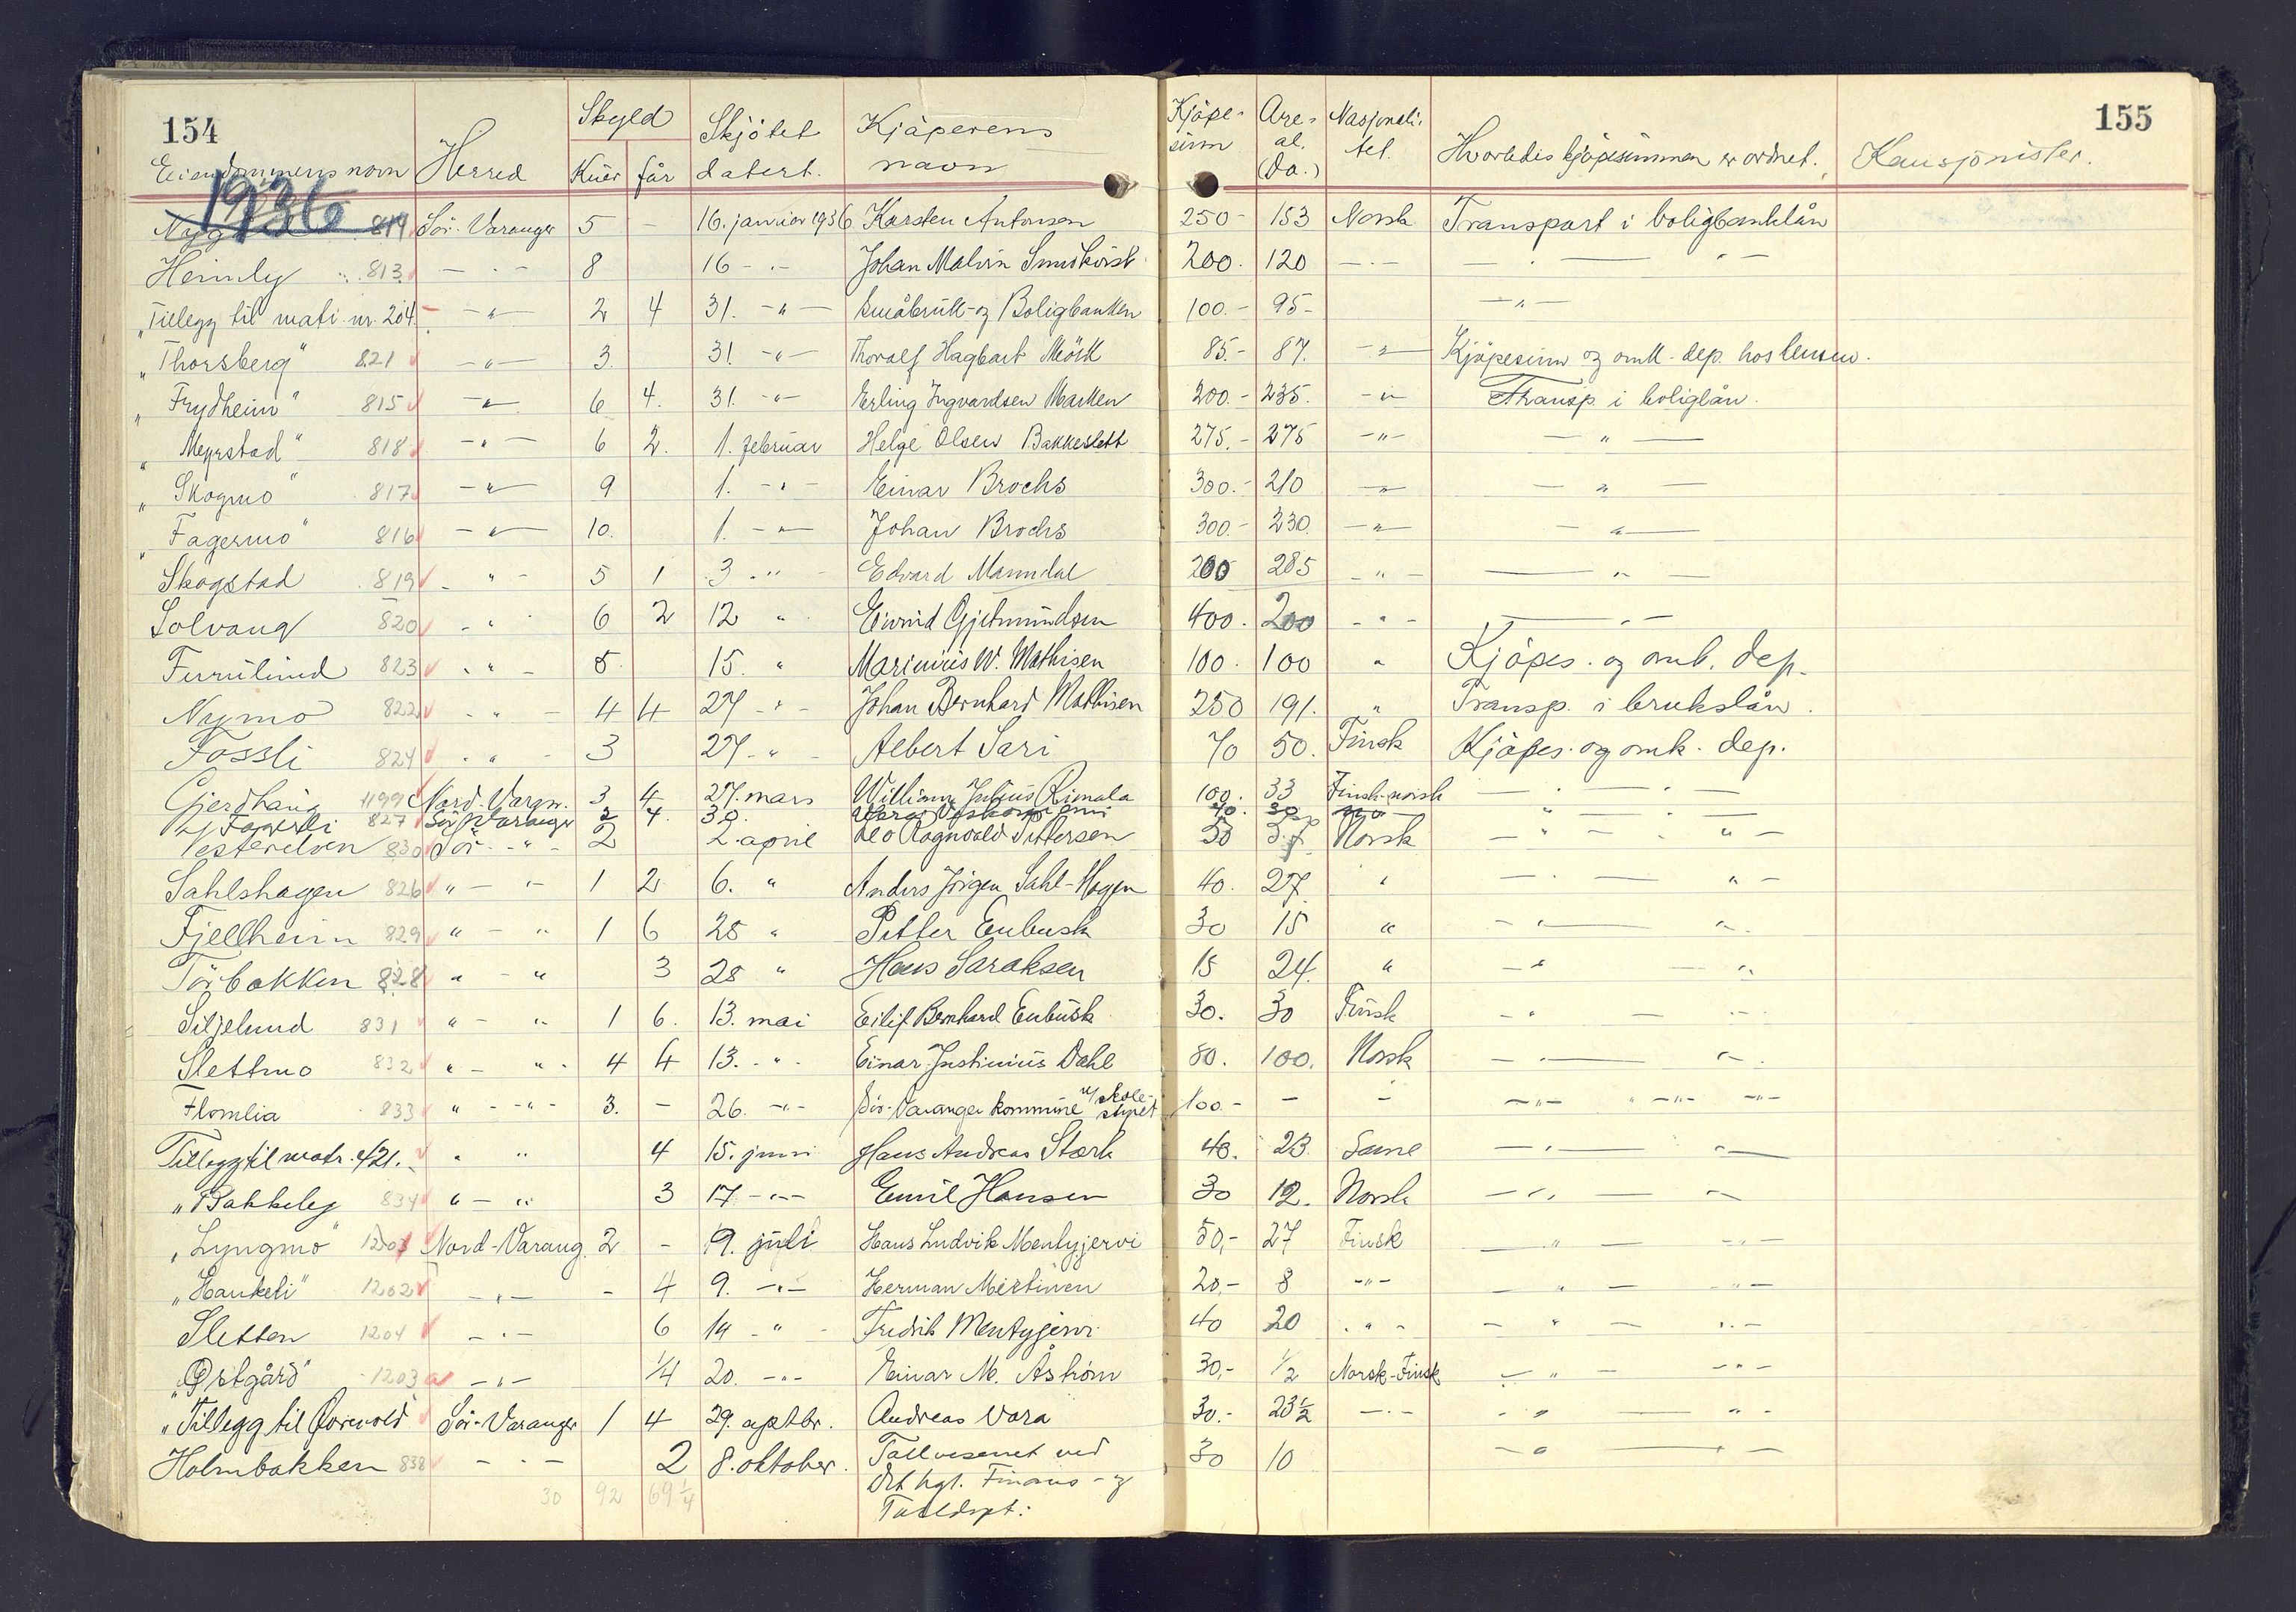 154
155
1936
Skyld
Eiendommens navn Herred Kuer får Skjötet datert. Kjöperens navn Kjöpe-sum Are-al. (Da.) Nasjonali-tet. Hvorledes kjöpesummen er ordnet. Kausjonister.
814 Sör-Varanger 5 – 16. januar 1936 Karsten Antonsen 250- 153 Norsk Transport i boligbanklån
Heimly 813 – " – 8 16 - " - Johan Malvin 200. 120 – " – – " –
"Tillegg til matr. nr. 204. – " – 2 4 31. – " – Småbruk- og Boligbanken 100.- 95- – " –
"Thorsberg" 821 – " – 3. 31 – " – Thoralf Hagbart Mörk 85.- 87. – " – Kjöpesum og omk. dep. hos lensm.
"Frydheim" 815 – " – 6 4. 31. – " – Erling Ingvardsen Marken 200.- 235. – " – Transp. i boliglån.
"Myrstad" 818 – " – 6 2. 1. februar Helge Olsen Bakkeslett 275.- 275 – " – – " –
"Skogmo" 817 – " – 9 1. – " – Einar Brochs 300.- 210 – " – – " –
"Fagermo" 816 – " – 10. 1. – " – Johan Brochs 300.- 230. – " – – " –
Skogstad 819 – " – 5 1 3 – " – Edvard Manndal 200 285 – " – – " –
Solvang 820 – " – 6 2 12 " Eivind Gjetmundsen 400. 200 – " – – " –
Furulund 823 – " – 5. 15. " Marinius W. Mathisen 100. 100 " Kjöpes. og omk. dep.
Nymo 822 – " – 4 4 27 – " – Johan Bernhard Mathisen 250 191. " Transp. i brukslån.
Fossli 824 – " – 3 27 – " – Albert Sari 70 50. Finsk Kjöpes. og omk. dep.
Gjerdhaug 1199 Nord-Varan. 3 4 27. mars William Julius Rimala 100. 33 Finsk-norsk – " –
827 Sör-Varanger 2 4. 30.
Vesterelven 830 Sör – " – 2 2. april Leo Ragnvald Pettersen 50 Norsk – " –
Sahlshagen 826 " – " – 1 2 6. " Anders Jörgen Sahl-Hagen 40. 27. " – " –
Fjellheim 829 " – " 1 6 28 " Petter Eubusk 30 15 " – " –
Törbakken 828 " – " 3 28 " Hans Saraksen 15 24. " – " –
Siljelund 831 " – " 1 6. 13. mai Eilif Bernhard Eubusk 30. 30 Finsk – " –
Slettmo 832 " – " 4 4 13. – " – Einar Justinius Dahl 80. 100. Norsk – " –
Flomlia 833 " – " – 3. – 26. – " – Sör-Varanger kommune v/ skole-styret 100.- – – – " – " – " – – " –
Tillegg til matr. 4/21. " " 4 15. juni Hans Andreas Stark 40. 23. Same – " –
"Bakkely 834 " – " 3 17 – " – Emil Hansen 30 12. Norsk – " –
"Lyngmo" Nord-Varang. 2 – 9. juli Hans Ludvik Mentyjervi 50,- 27 Finsk – " –
"Haukeli" 1202 – " – – 4 9. – " – Herman Mertinen 20,- 8 – " – – " –
Sletten 1204 – " – 6 14 – " – Fredrik Mentyjervi 40 20 – " – – " –
"Østgård" 1203 – " – 1/4 20. – " – Einar M. Åström 30,- 1/2 Norsk-Finsk – " –
"Tillegg til Sör-Varanger 1 4 29. septbr. Andreas Vara 30.- 23 1/2 – " – – " –
Holmbakken 838 – " – 2 8. oktober. Tollvesenet ved 30 10 – " –
Det kgl. Finans- og
Tolldept:
30 92 69 1/4